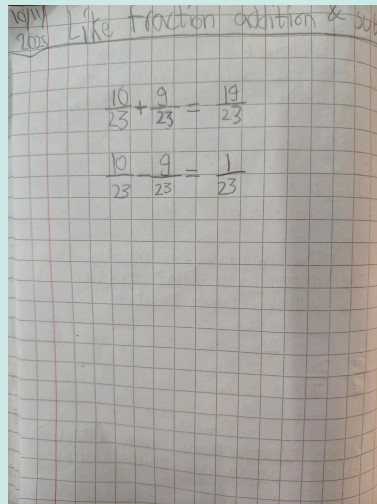 10/11/2025 Like fraction addition &
10/23 + 9/23 = 19/23
10/23 - 9/23 = 1/23